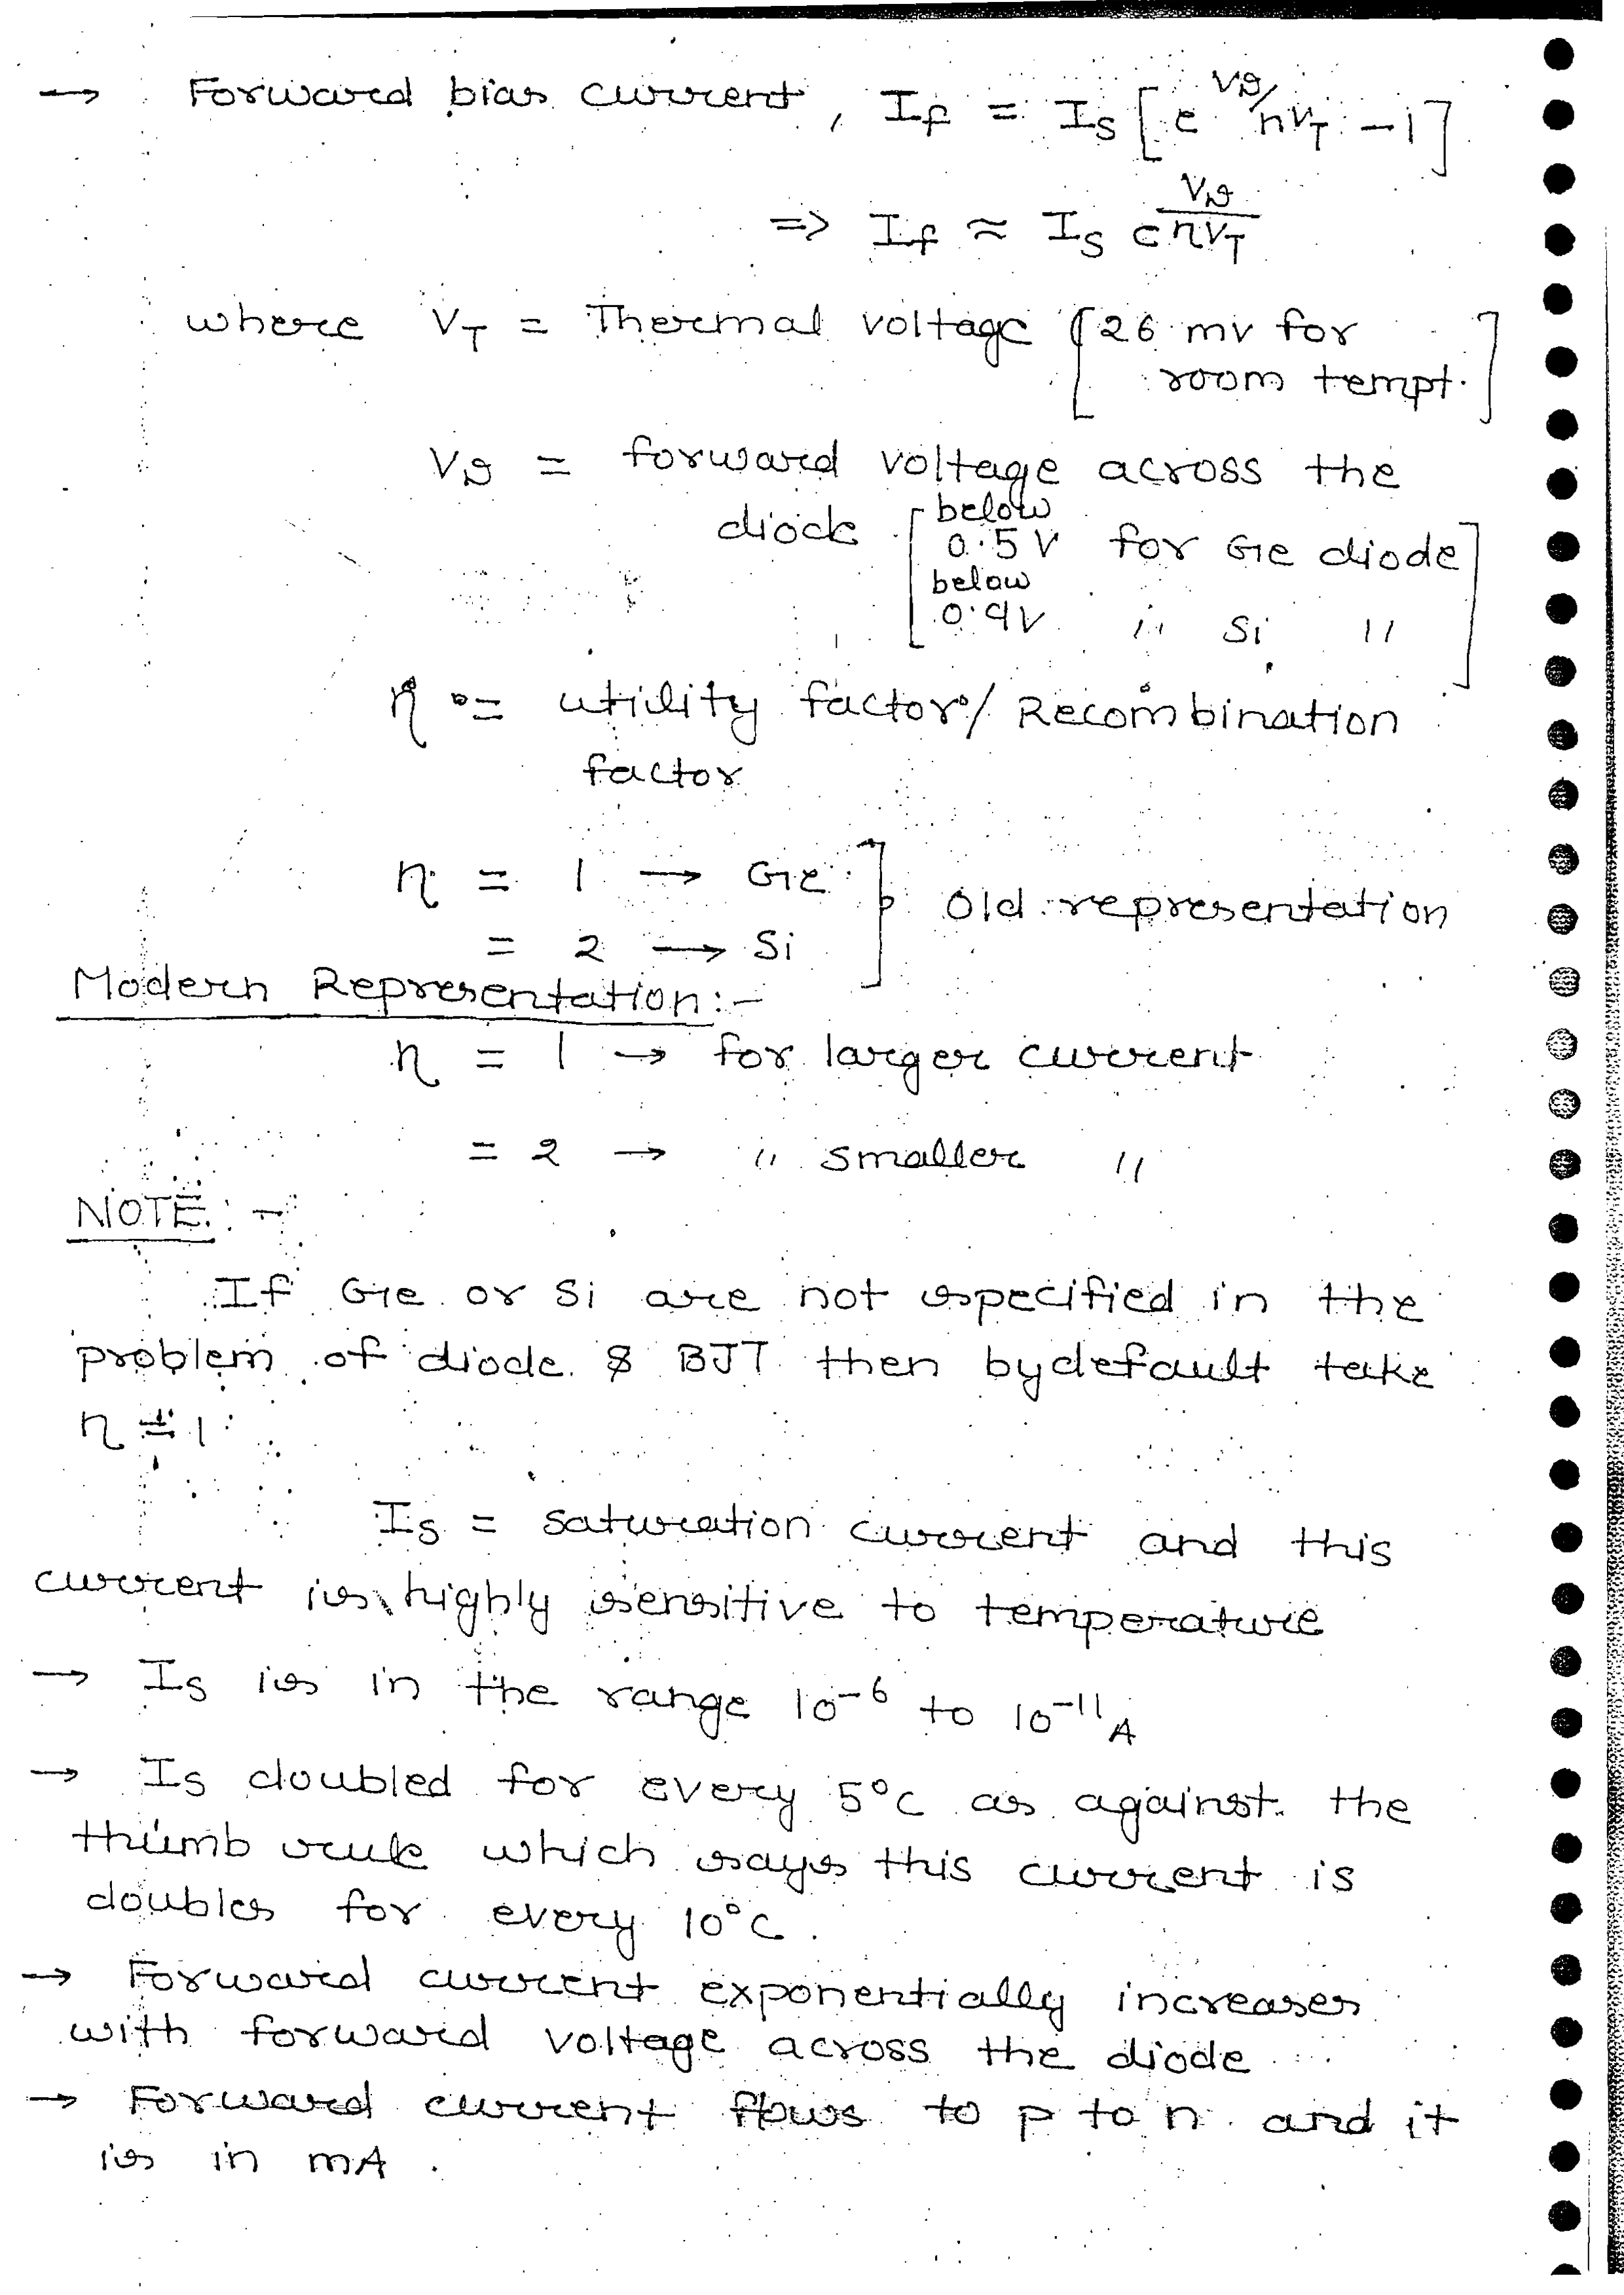 → Forward bias current, If = Is [e^VD/ηVT − 1]
⇒ If ≈ Is e^VD/ηVT
where VT = Thermal voltage [26 mv for
room tempt.]
VD = forward voltage across the
diode [below
0.5 V for Ge diode
below
0.9V " Si "]
η = utility factor/ Recombination
factor
η = 1 → Ge
Old representation
= 2 → Si
Modern Representation:-
η = 1 → for larger current
= 2 → " smaller "
NOTE:-
If Ge or Si are not specified in the
problem of diode & BJT then bydefault take
η = 1
Is = saturation current and this
current is highly sensitive to temperature
→ Is is in the range 10^-6 to 10^-11 A
→ Is doubled for every 5°c as against the
thumb rule which says this current is
doubles for every 10°c.
→ Forward current exponentially increases
with forward voltage across the diode
→ Forward current flows to p to n and it
is in mA.